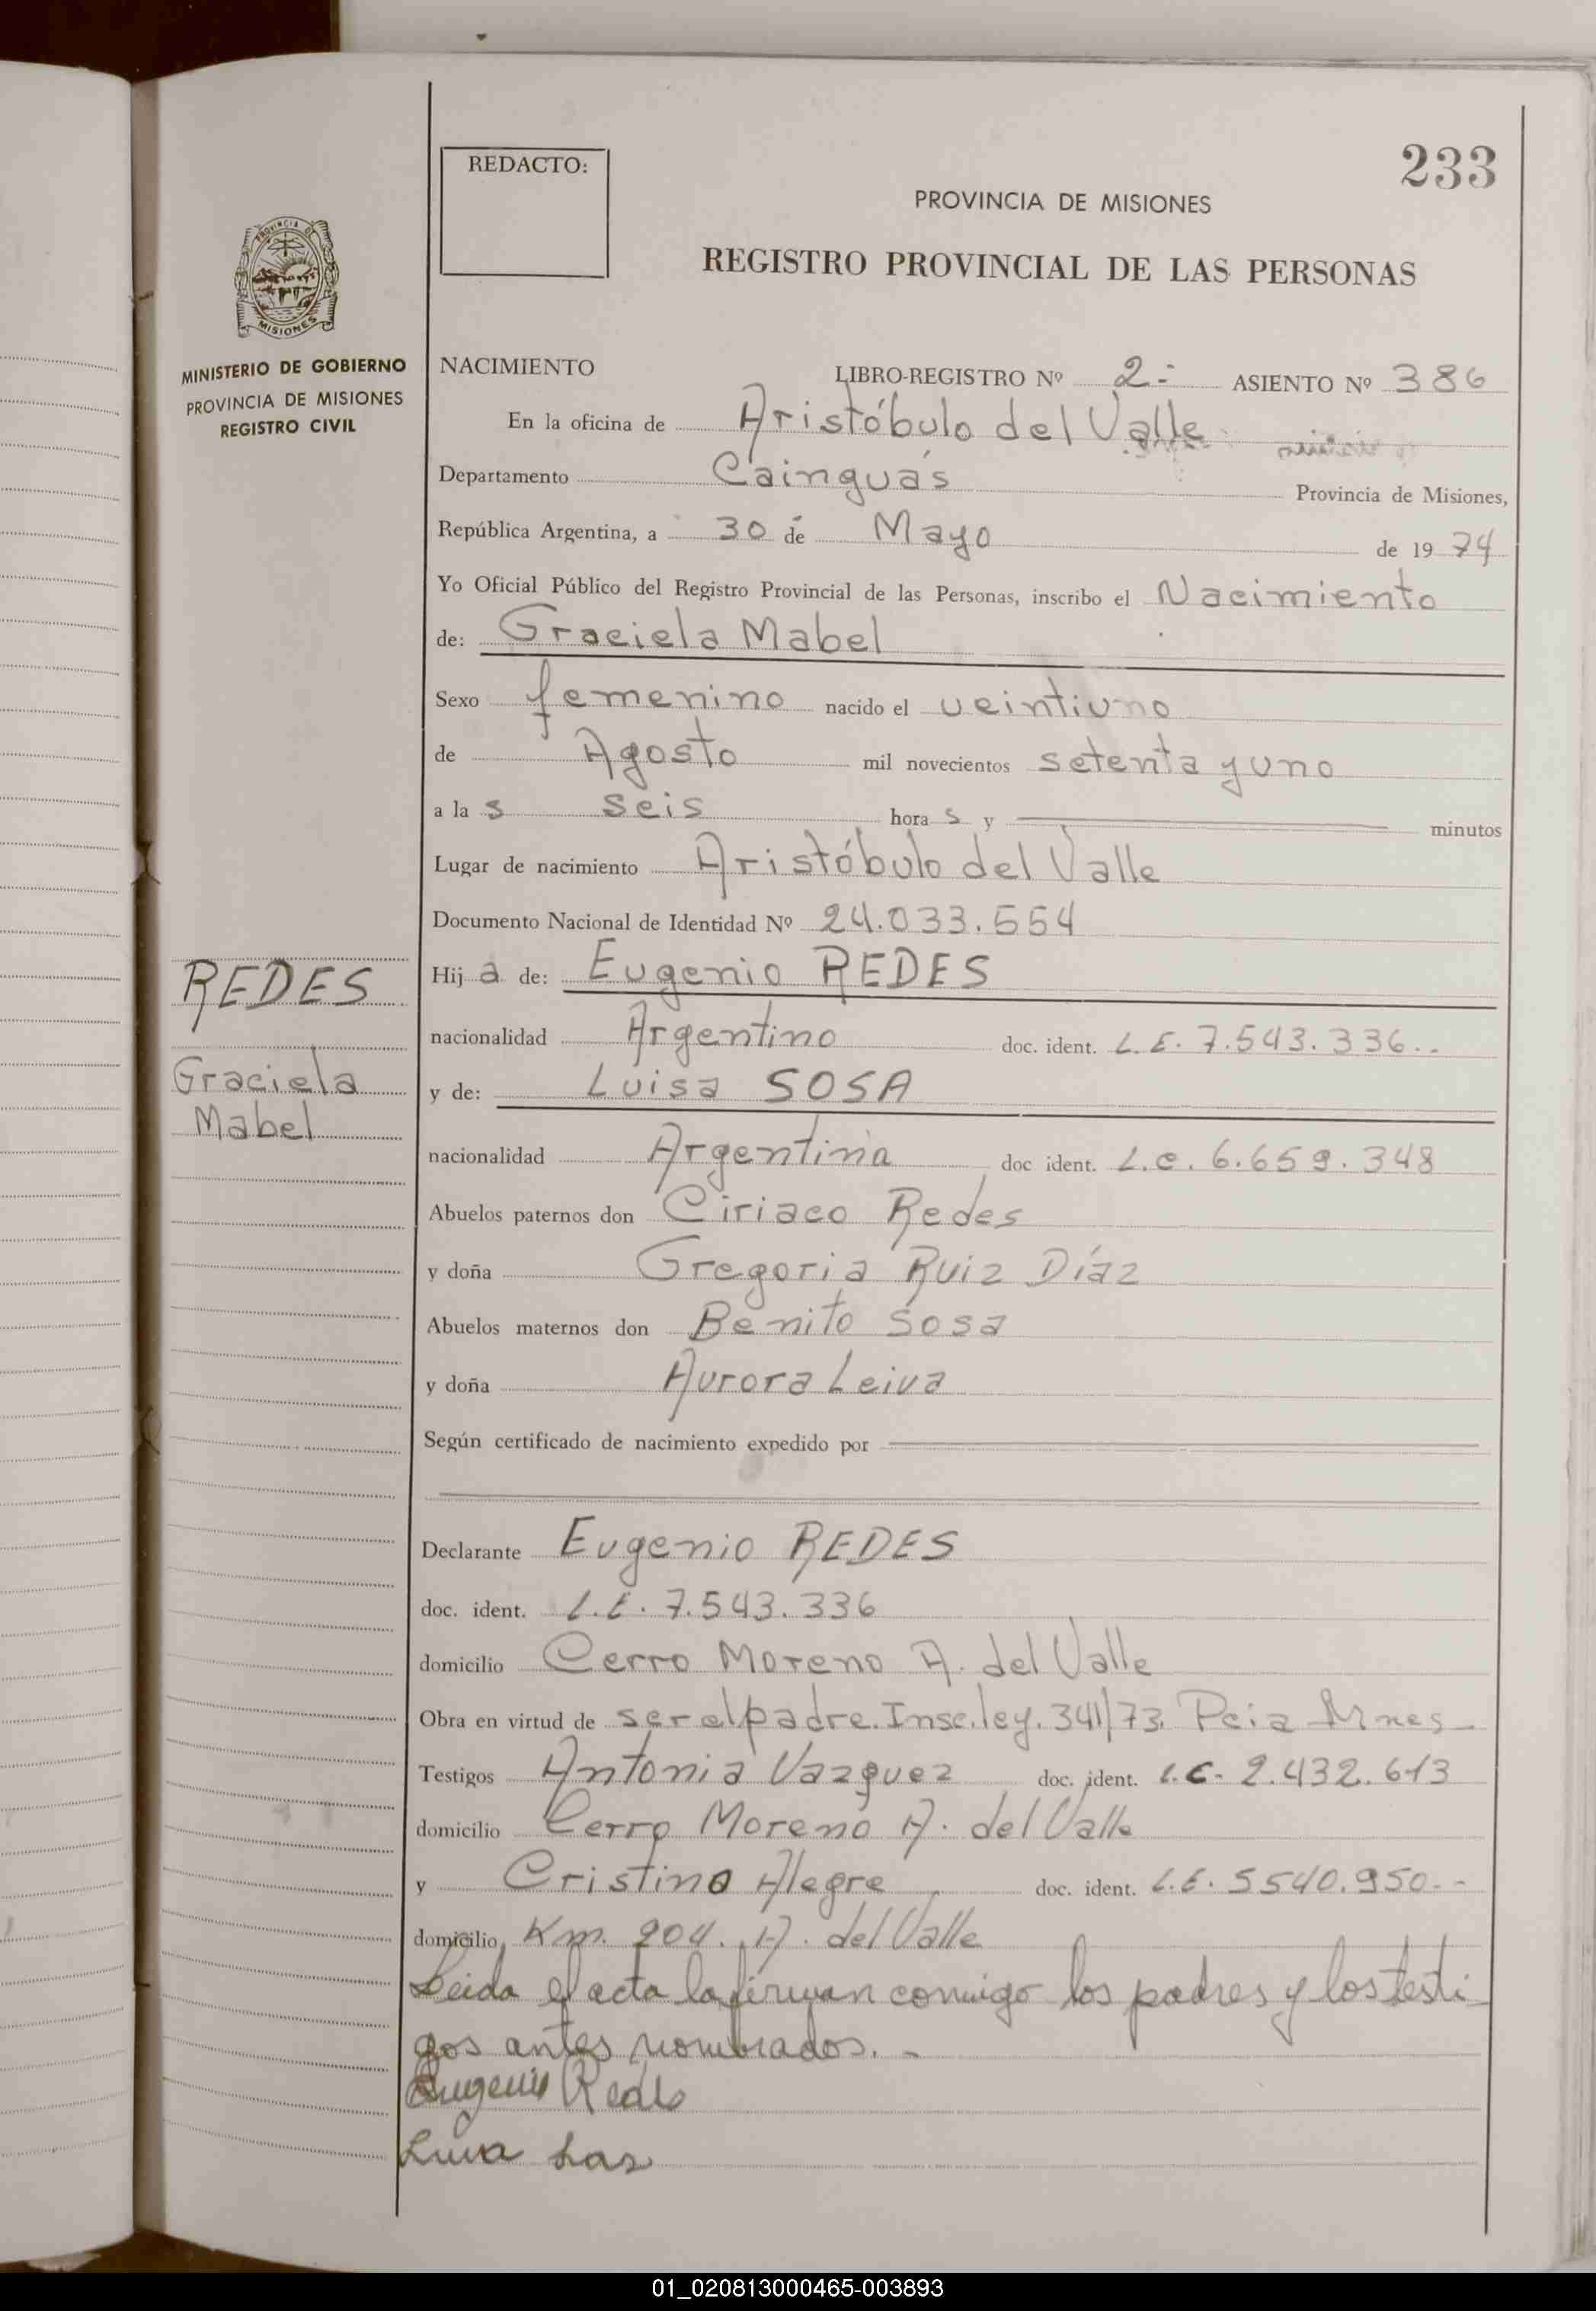 233
REDACTO:
PROVINCIA DE MISIONES
REGISTRO PROVINCIAL DE LAS PERSONAS
PROVINCIA DE MISIONES
MINISTERIO DE GOBIERNO
PROVINCIA DE MISIONES
REGISTRO CIVIL
NACIMIENTO LIBRO-REGISTRO Nº 2- ASIENTO Nº 386
En la oficina de Aristóbulo del Valle
Departamento Cainguás Provincia de Misiones,
República Argentina, a 30 de Mayo de 19 74
Yo Oficial Público del Registro Provincial de las Personas, inscribo el Nacimiento
de: Graciela Mabel
Sexo femenino nacido el veintiuno
de Agosto mil novecientos setenta y uno
a la s seis hora s y minutos
Lugar de nacimiento Aristóbulo del Valle
Documento Nacional de Identidad Nº 24.033.554
REDES
Graciela
Mabel
Hij a de: Eugenio REDES
nacionalidad Argentino doc. ident. L.E. 7.543.336..
y de: Luisa SOSA
nacionalidad Argentina doc ident. L.C. 6.659.348
Abuelos paternos don Ciriaco Redes
y doña Gregoria Ruiz Díaz
Abuelos maternos don Benito Sosa
y doña Aurora Leiva
Según certificado de nacimiento expedido por
Declarante Eugenio REDES
doc. ident. L.E. 7.543.336
domicilio Cerro Moreno A. del Valle
Obra en virtud de ser el padre. Insc. ley. 341/73. Pcia Mnes
Testigos Antonia Vazquez doc. ident. L.C. 2.432.613
domicilio Cerro Moreno A. del Valle
y Cristino Alegre doc. ident. L.E. 5540.950--
domicilio Km. 204. A. del Valle
Leida el acta la firman conmigo los padres y los testi
gos antes nombrados.-
Eugenio Redes
01_020813000465-003893